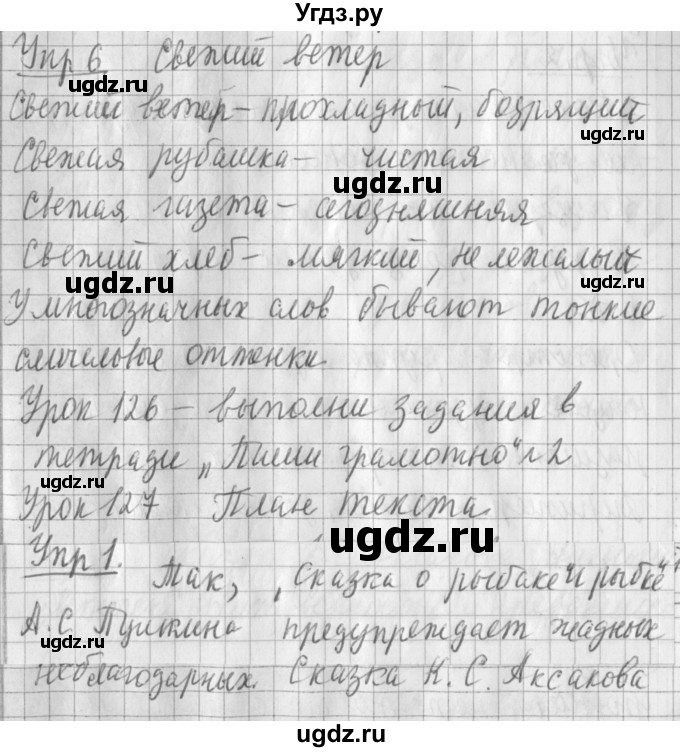 Угдз.ру
Упр 6 Свежий ветер
Свежий ветер – прохладный, бодрящий
ugdz.ru
Свежая рубашка – чистая
ugdz.ru
Свежая газета – сегодняшняя
Свежий хлеб – мягкий, не лежалый
ugdz.ru
ugdz.ru
У многозначных слов бывают тонкие
смысловые оттенки.
Урок 126 – выполни задания в
тетради „Пиши грамотно“ №2
Урок 127 План текста.
ugdz.ru
Упр 1.
Так, „Сказка о рыбаке и рыбке“
А.С Пушкина предупреждает жадных
ugdz.ru
неблагодарных. Сказка К. С. Аксакова
ugdz.ru
ugdz.ru